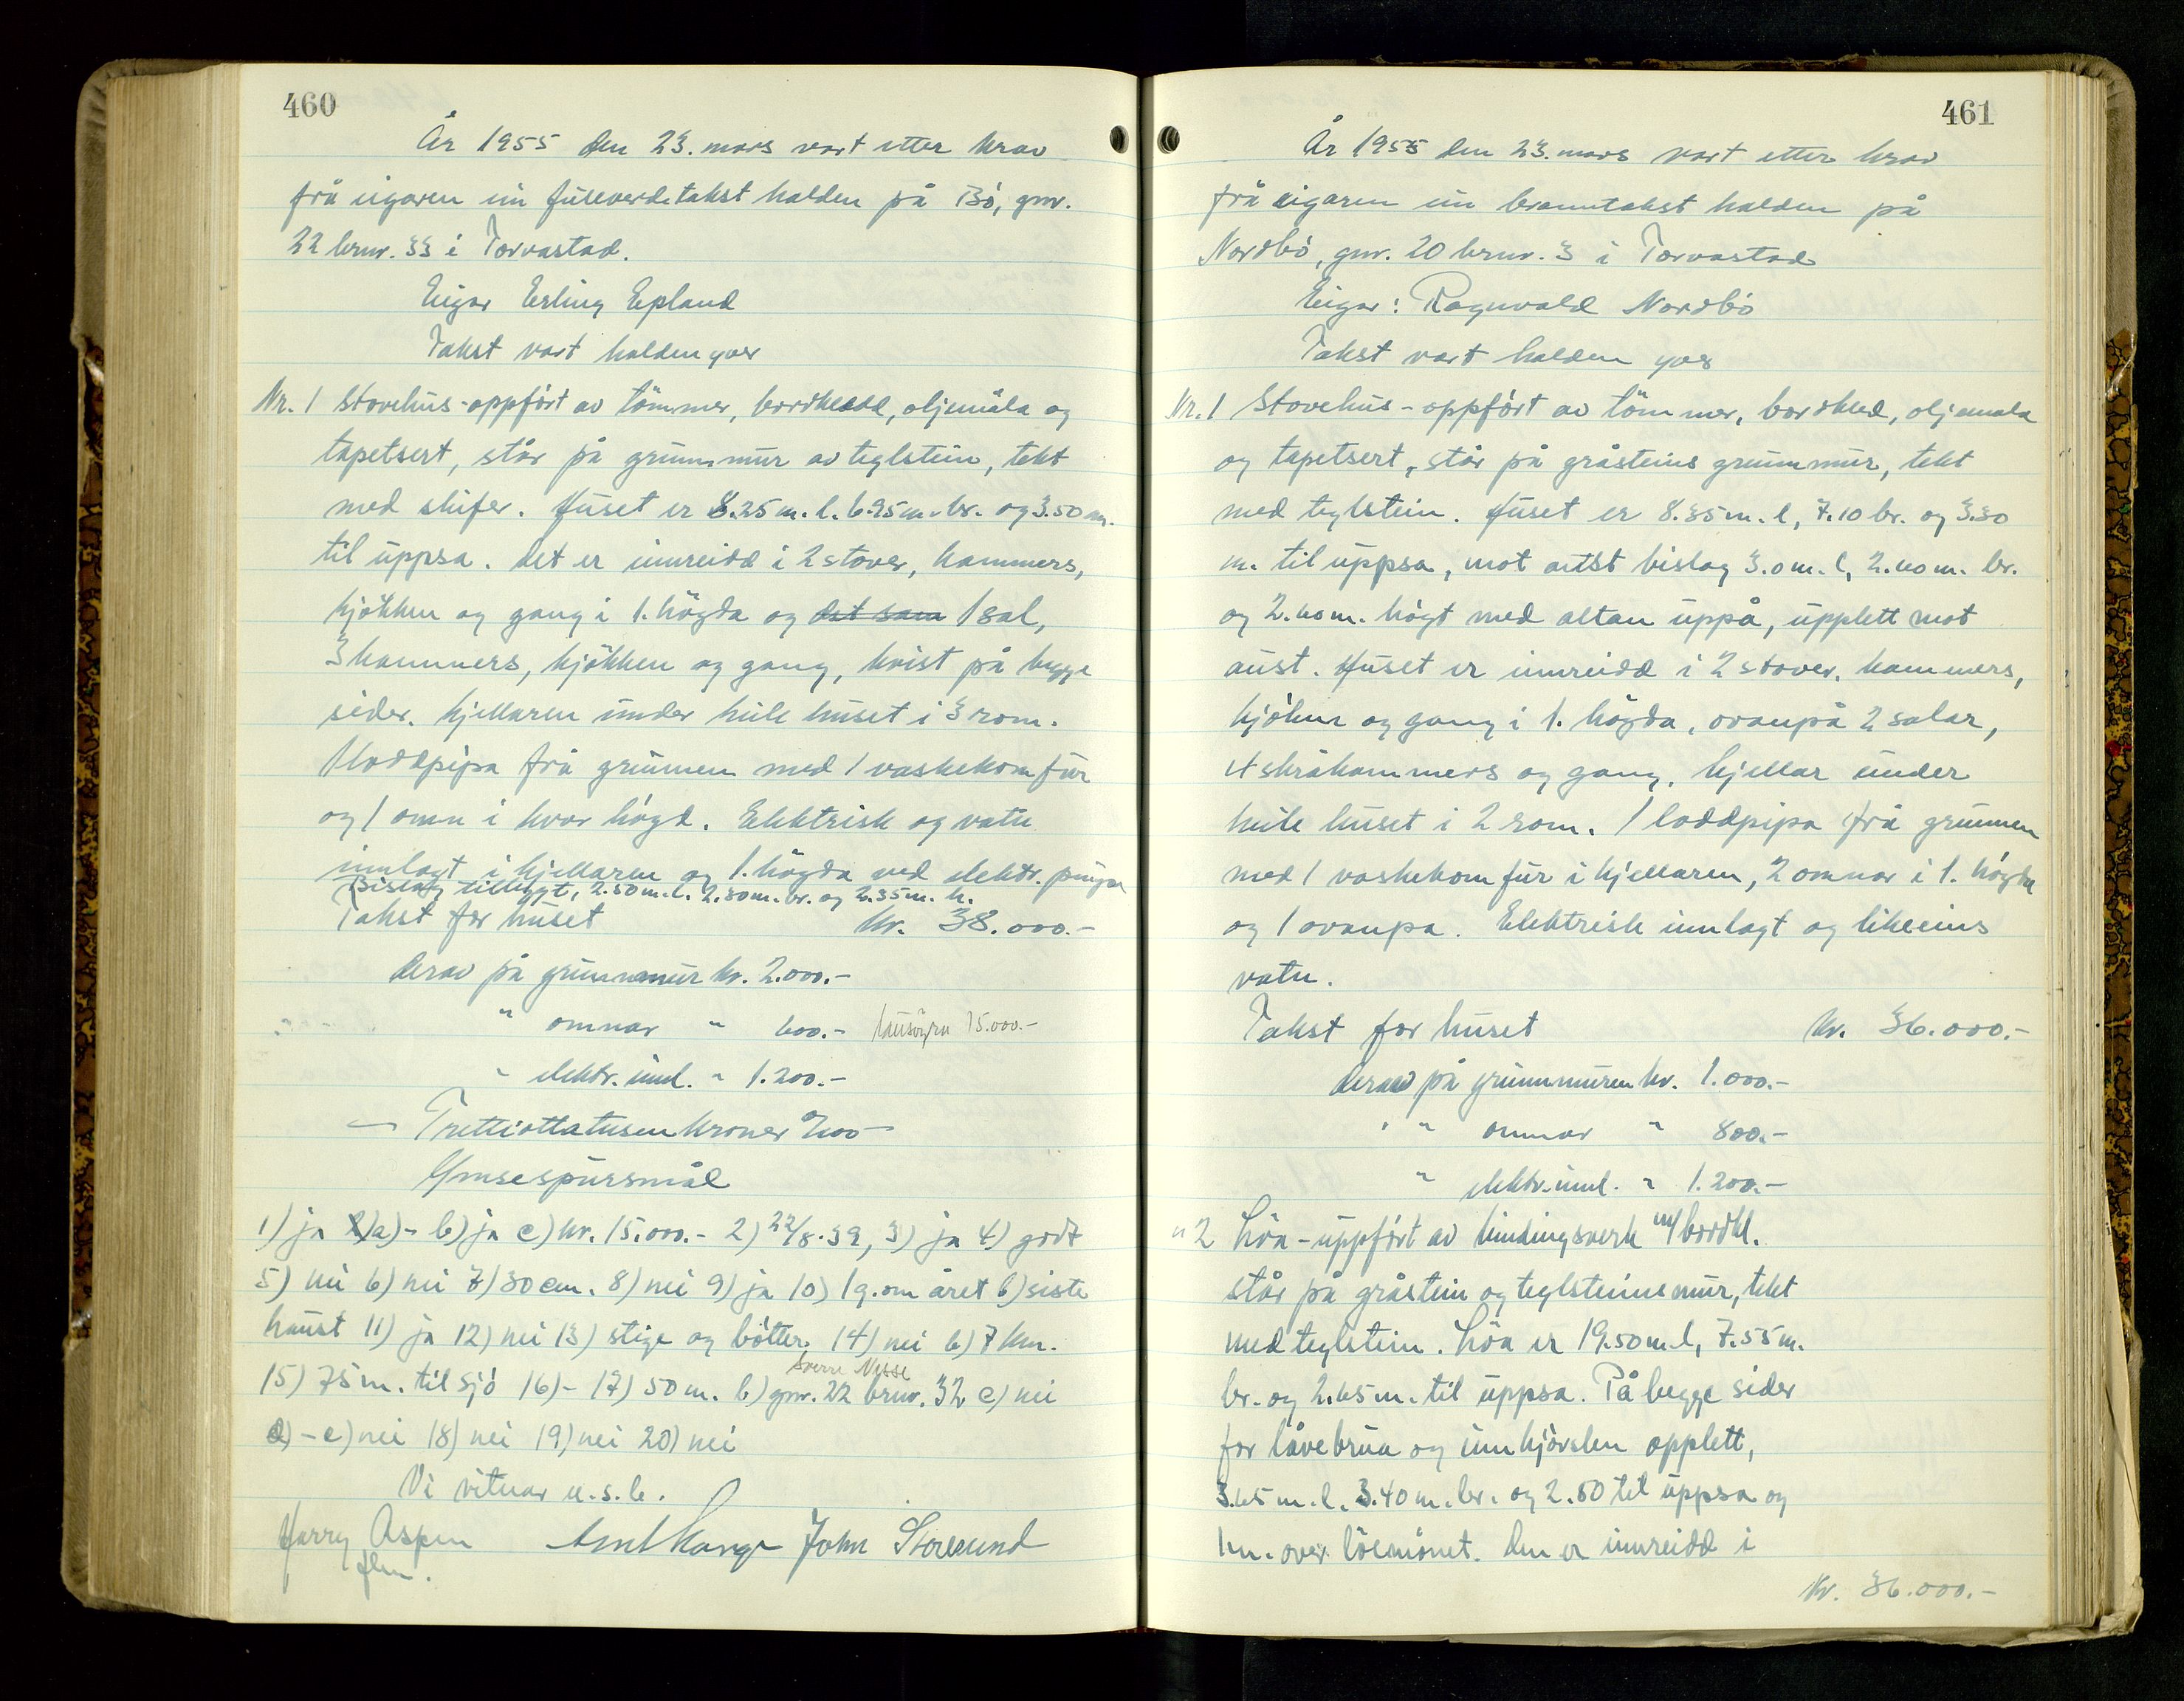 460
År 1955 den 23. mars vart etter krav
frå eigaren ein fulleverdetakst halden på Bö, gnr.
22 brnr. 33 i Torvastad.
Eigar Erling Epland
Takst vart halden yver
Nr. 1 Stovehus - oppfört av tömmer, bordkledd, oljemåla og
tapetsert, står på grunnmur av teglstein, tekt
med skifer. Huset er 8.25 m. l. 6.95 m. br. og 3.50 m.
til uppsa. Det er innreidd i 2 stover, kammers,
kjökken og gang i 1. högda og det sam 1 sal,
3 kammers, kjökken og gang, kvist på begge
sider. Kjellaren under heile huset i 3 rom.
1 loddpipa frå grunnen med 1 vaskekomfur
og 1 omn i kvar högd. Elektrisk og vatn
innlagt i kjellaren og 1. högda ved elektr. pumpe
Bislag tilbygt, 2.50 m. l. 2.30 m. br. og 2.35 m. h.
Takst for huset kr. 38.000.-
derav på grunnmur kr. 2.000.-
" omnar " 600.- lausöyra 15.000.-
" elektr. innl. " 1.200.-
— Trettiottatusen kroner 0/100 —
Ymse spursmål
1) ja 2) a) - b) ja c) kr. 15.000.- 2) 22/8.39, 3) ja 4) godt
5) nei 6) nei 7) 30 cm. 8) nei 9) ja 10) 1 g. om året b) siste
haust 11) ja 12) nei 13) stige og bötter 14) nei b) 7 km.
Sverre Nesse
15) 75 m. til sjö 16) - 17) 50 m. b) gnr. 22 brnr. 32 c) nei
d) - e) nei 18) nei 19) nei 20) nei
Vi vitnar u. s. b.
Harry Aspen John Storesund
flm.
461
År 1955 den 23. mars vart etter krav
frå eigaren ein branntakst halden på
Nordbö, gnr. 20 brnr. 3 i Torvastad
Eigar: Ragnvald Nordbö
Takst vart halden yver
Nr. 1 Stovehus - oppfört av tömmer, bordkled, oljemala
og tapetsert, står på gråsteins grunnmur, tekt
med teglstein. Huset er 8.35 m. l, 7.10 br. og 3.30
m. til uppsa, mot autst bislag 3.0 m. l, 2.40 m. br.
og 2.60 m. högt med altan uppå, upplett mot
aust. Huset er innreidd i 2 stover, kammers,
kjöken og gang i 1. högda, ovanpå 2 salar,
4 skråkammers og gang. Kjellar under
heile huset i 2 rom. 1 loddpipa frå grunnen
med 1 vaskekomfur i kjellaren, 2 omnar i 1. högda
og 1 ovanpa. Elektrisk innlagt og likeeins
vatn.
Takst for huset kr. 36.000.-
derav på grunnmuren kr. 1.000.-
" " omnar " 800.-
" elektr. innl. " 1.200.-
" 2 Löa - uppfört av bindingsverk m/ bordkl.
står på gråstein og teglsteinsmur, tekt
med teglstein. Löa er 19.50 m. l, 7.55 m.
br. og 2.65 m. til uppsa. På begge sider
for låvebrua og innkjörslen opplett,
3.65 m. l. 3.40 m. br. og 2.80 til uppsa og
1 m. over löemönet. Den er innreidd i
Kr. 36.000.-